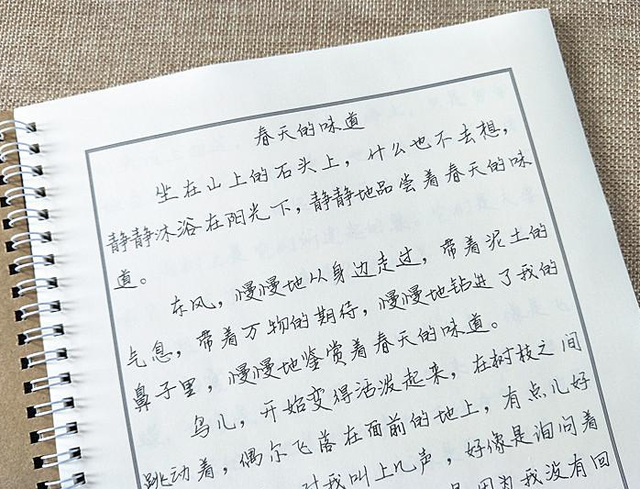 春天的味道
坐在山上的石头上，什么也不去想，
静静沐浴在阳光下，静静地品尝着春天的味
道。
东风，慢慢地从身边走过，带着泥土的
气息，带着万物的期待，慢慢地钻进了我的
鼻子里，慢慢地鉴赏着春天的味道。
鸟儿，开始变得活泼起来，在树枝之间
跳动着，偶尔飞落在面前的地上，有点儿好
对我叫上几声，好像是询问着
因为我没有回